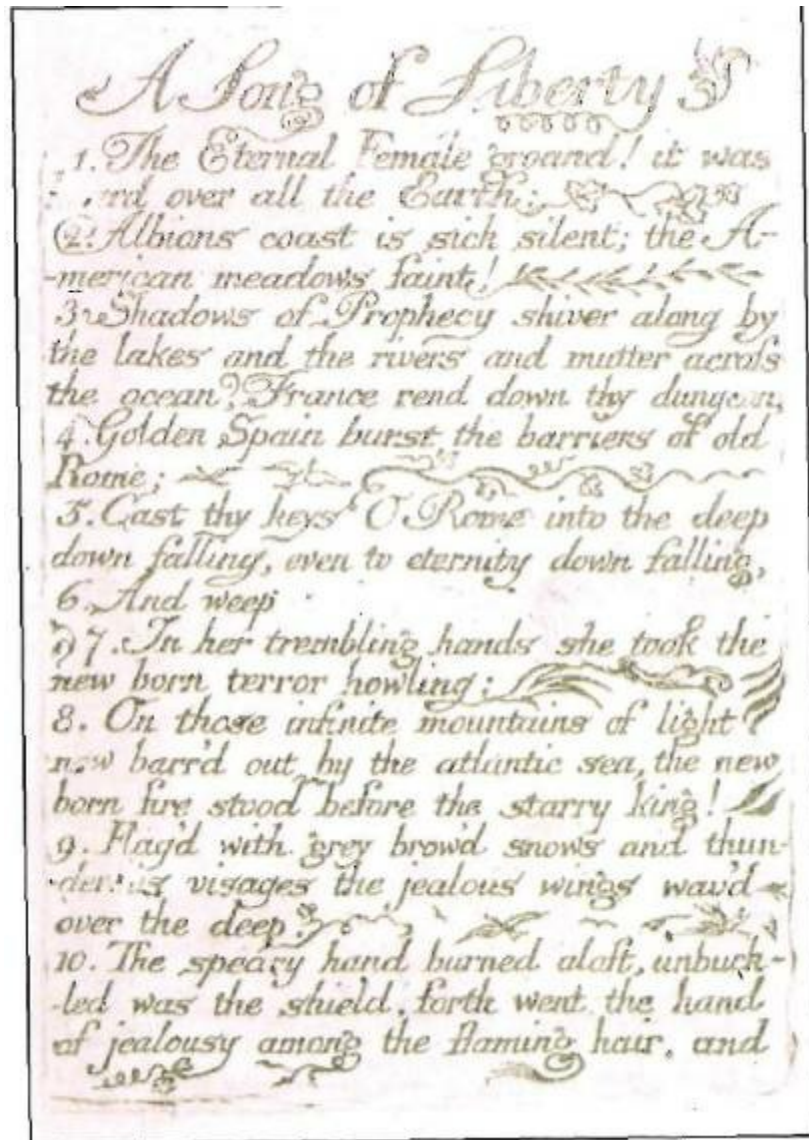 A Song of Liberty
1. The Eternal Female groand! it was
over all the Earth:
2. Albions coast is sick silent; the A-
-merican meadows faint!
3 Shadows of Prophecy shiver along by
the lakes and the rivers and mutter across
the ocean? France rend down thy dungeon,
4. Golden Spain burst the barriers of old
Rome;
5. Cast thy keys O Rome into the deep
down falling, even to eternity down falling,
6. And weep
7. In her trembling hands she took the
new born terror howling:
8. On those infinite mountains of light
now barr'd out by the atlantic sea, the new
born fire stood before the starry king!
9. Flag'd with grey brow'd snows and thun-
-derous visages the jealous wings wav'd
over the deep.
10. The speary hand burned aloft, unbuck-
-led was the shield, forth went the hand
of jealousy among the flaming hair, and